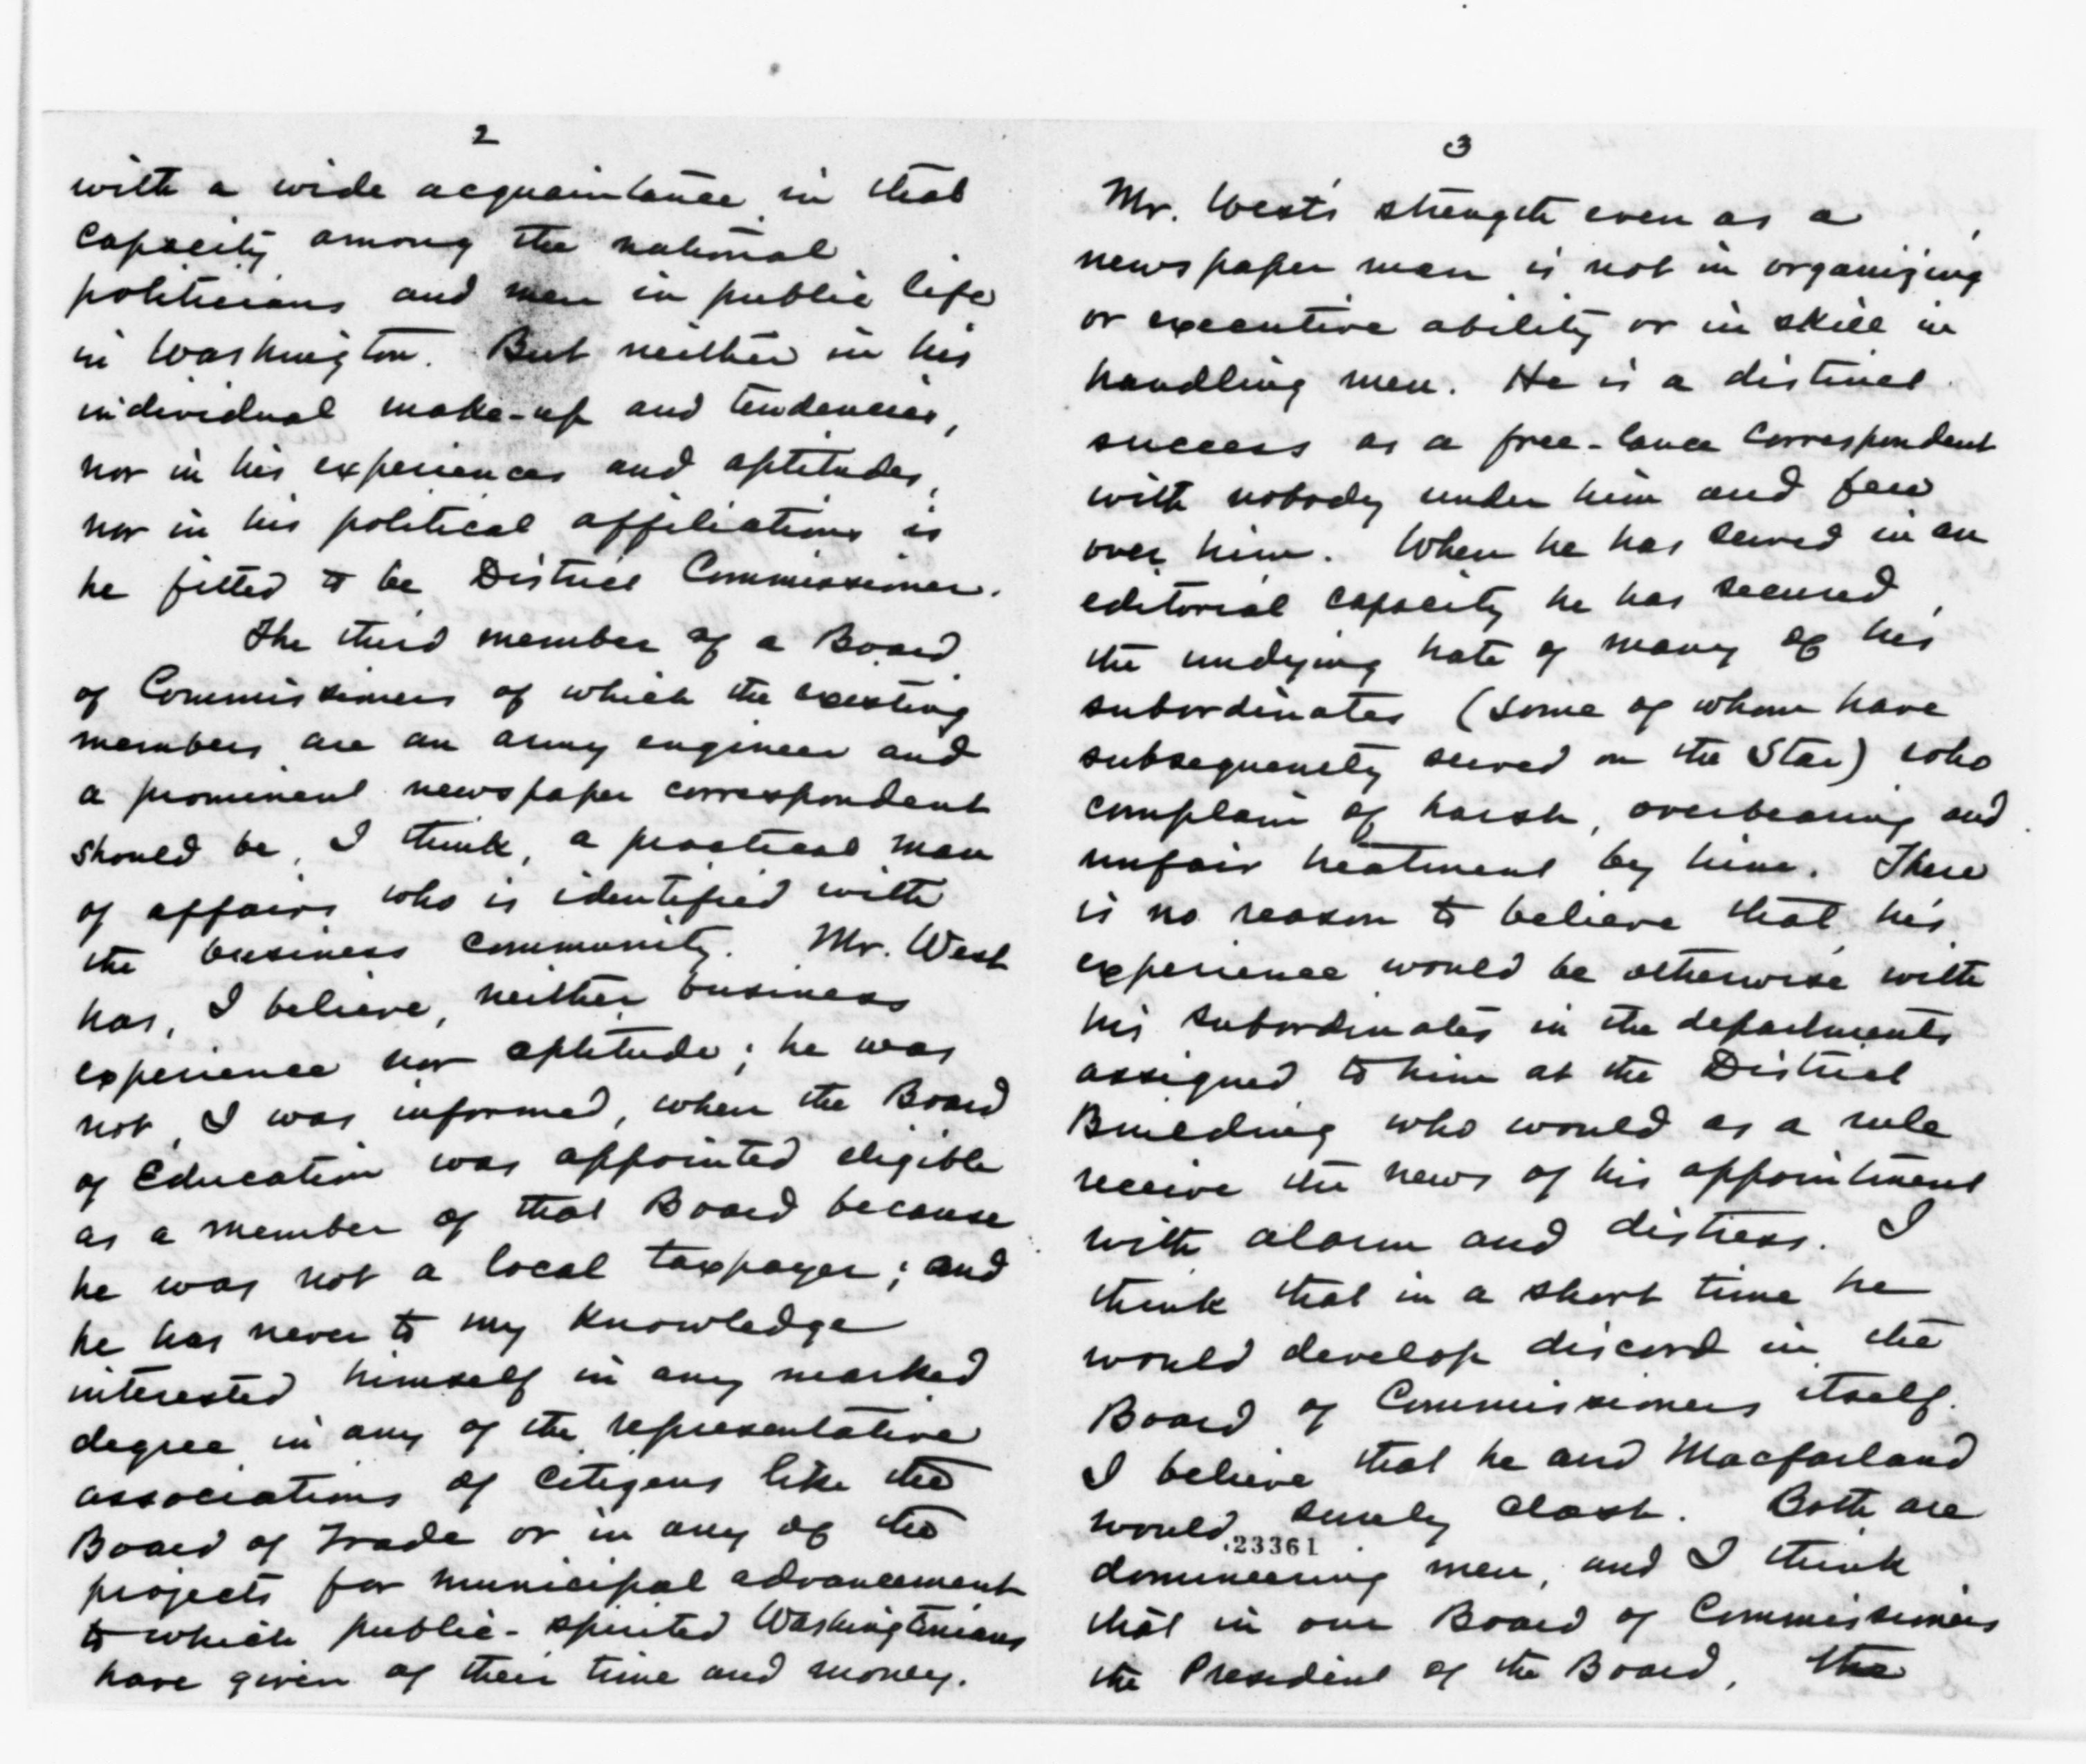 2
with a wide acquaintance in that
capacity among the national
politicians and men in public life
in Washington. But neither in his
individual make-up and tendencies,
nor in his experiences and aptitudes,
nor in his political affiliations is
he fitted to be District Commissioner.
The third member of a Board
of Commissioners of which the existing
members are an army engineer and
a prominent newspaper correspondent
should be, I think, a practical man
of affairs who is identified with
the business community. Mr. West
has, I believe, neither business
experience nor aptitude; he was
not, I was informed, when the Board
of Education was appointed eligible
as a member of that Board because
he was not a local taxpayer; and
he has never to my knowledge
interested himself in any marked
degree in any of the representative
associations of citizens like the
Board of Trade or in any of the
projects for municipal advancement
to which public-spirited Washingtonians
have given of their time and money.
3
Mr. West's strength even as a
newspaper man is not in organizing
or executive ability or in skill in
handling men. He is a distinct
success as a free-lance correspondent
with nobody under him and few
over him. When he has served in an
editorial capacity he has secured
the undying hate of many of his
subordinates (some of whom have
subsequently served on the Star) who
complain of harsh, overbearing and
unfair treatment by him. There
is no reason to believe that his
experience would be otherwise with
his subordinates in the departments
assigned to him at the District
Building who would as a rule
receive the news of his appointment
with alarm and distress. I
think that in a short time he
would develop discord in the
Board of Commissioners itself.
I believe that he and Macfarland
would surely clash. Both are
23361
domineering men, and I think
that in our Board of Commissioners
the President of the Board, the